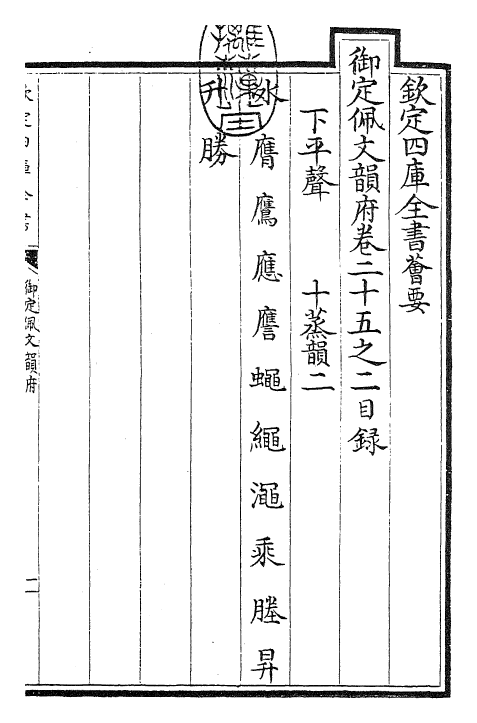 欽定四庫全書薈要
御定佩文韻府卷二十五之二目録
下平聲　十蒸韻二
氷 膺 鷹 應 譍 蠅 繩 澠 乘 塍 昇
升 勝
御定佩文韻府